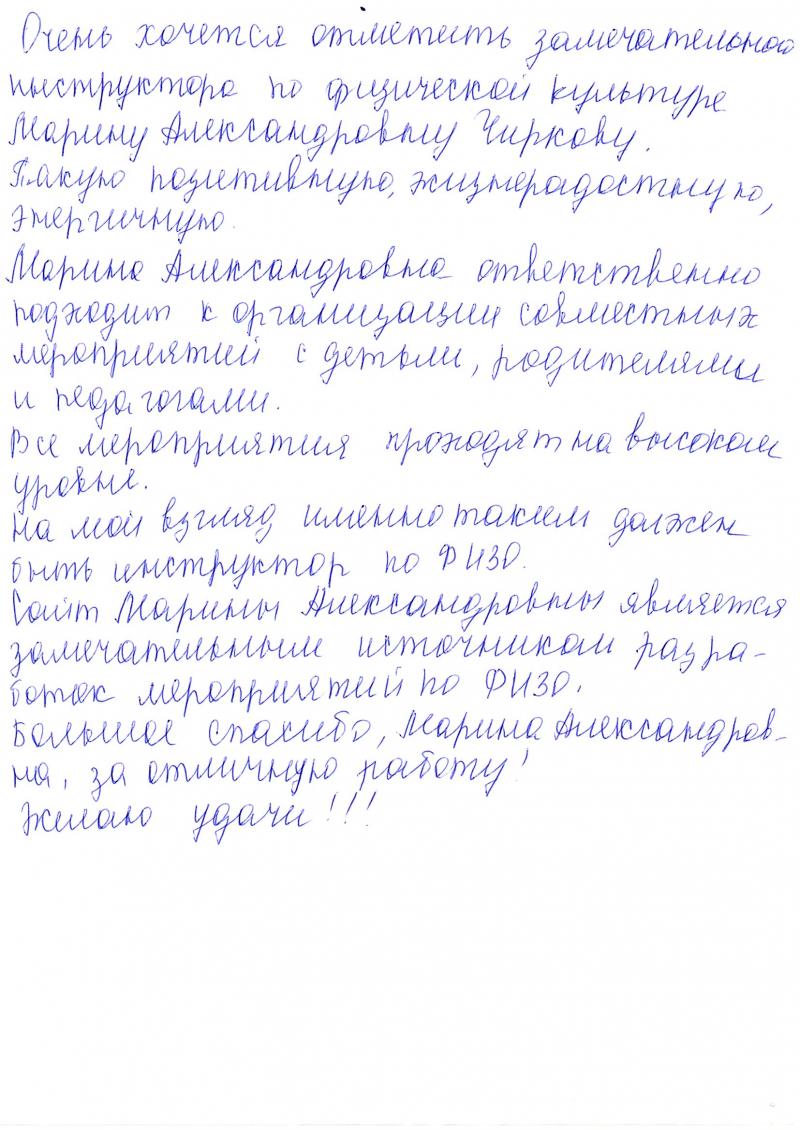 Очень хочется отметить замечательного
инструктора по физической культуре
Марину Александровну Чиркову.
Такую позитивную, жизнерадостную,
энергичную.
Марина Александровна ответственно
подходит к организации совместных
мероприятий с детьми, родителями
и педагогами.
Все мероприятия проходят на высоком
уровне.
На мой взгляд именно таким должен
быть инструктор по ФИЗО.
Сайт Марины Александровны является
замечательным источником разра-
боток мероприятий по ФИЗО.
Большое спасибо, Марина Александров-
на, за отличную работу!
Желаю удачи!!!